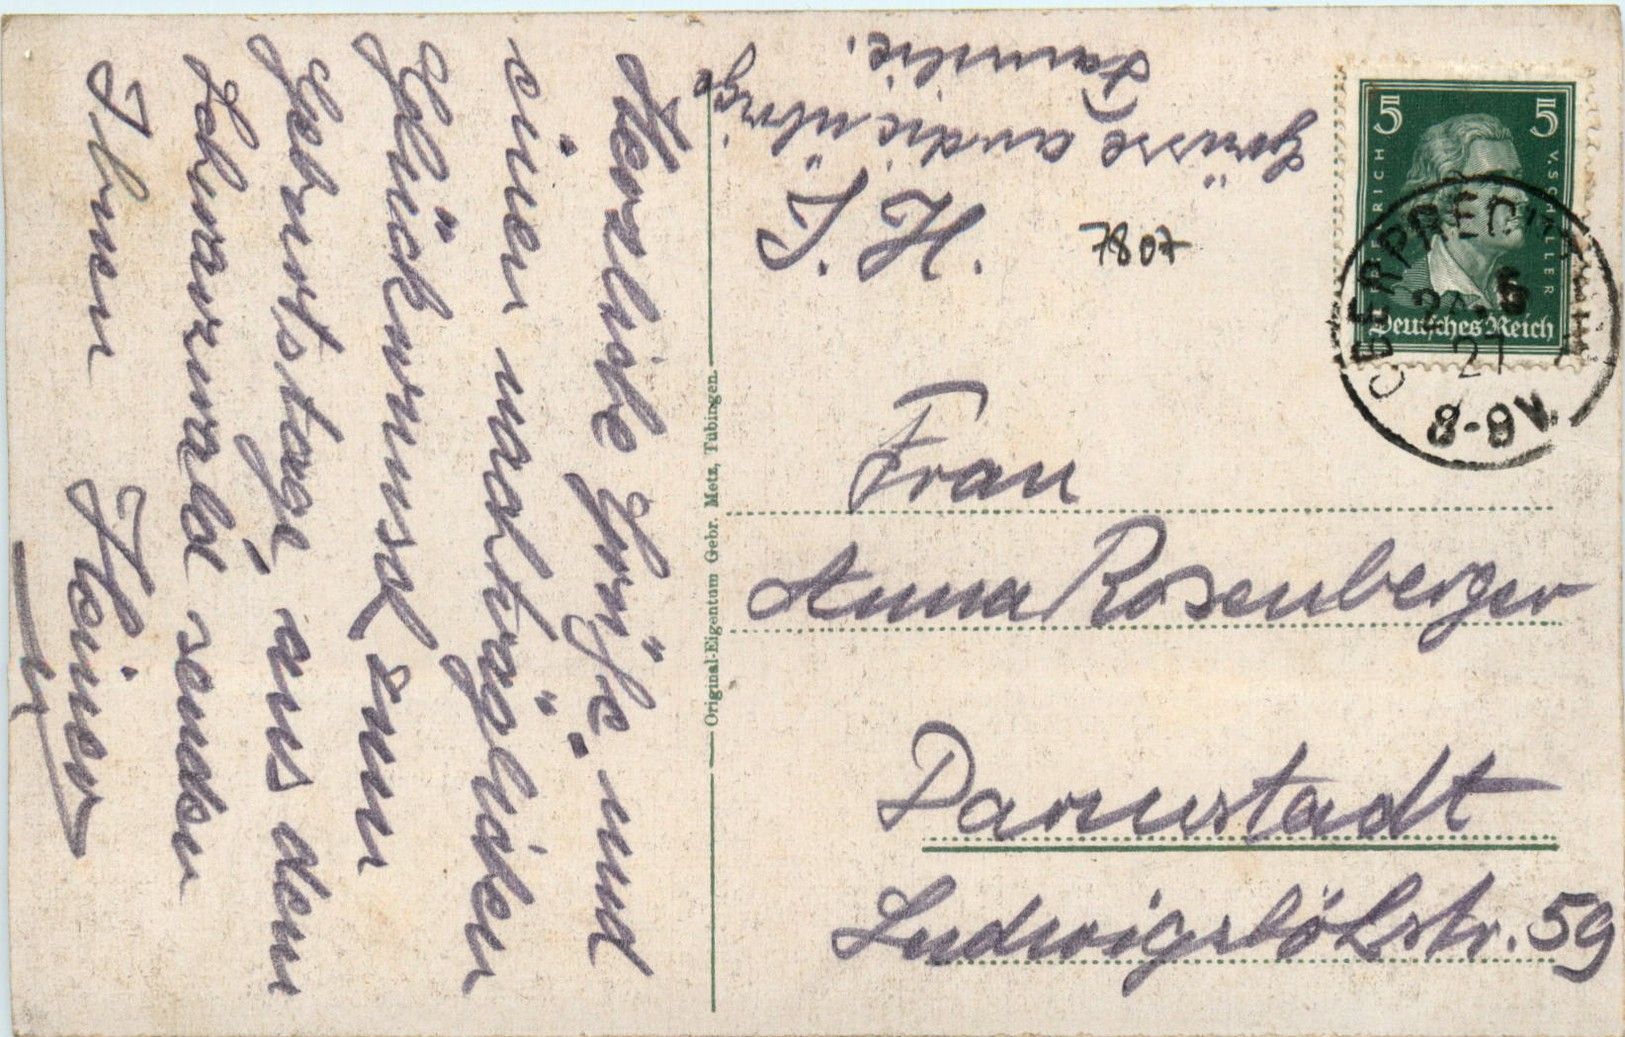 Herzliche Grüße und
einen nachträglichen
Glückwunsch zum
Geburtstage, aus dem
Schwarzwald senden
Ihnen Heiner
H. L.
Grüsse an die übrige
Familie.
7807
5 5
FRIEDRICH V. SCHILLER
Deutsches Reich
27
8-9 V.
Original-Eigentum Gebr. Metz, Tübingen.
Frau
Anna Rosenberger
Darmstadt
Ludwigshöhstr. 59